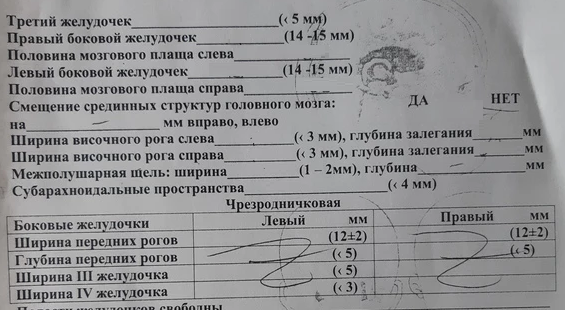 Третий желудочек____________________(‹ 5 мм)
Правый боковой желудочек____________(14 -15 мм)
Половина мозгового плаща слева____________________
Левый боковой желудочек_____________(14 -15 мм)
Половина мозгового плаща справа__________________
Смещение срединных структур головного мозга: ДА НЕТ
на_______–_________ мм вправо, влево
Ширина височного рога слева___________(‹ 3 мм), глубина залегания_______мм
Ширина височного рога справа__________(‹ 3 мм), глубина залегания_______мм
Межполушарная щель: ширина_________(1 – 2мм), глубина___________мм
Субарахноидальные пространства__________________(‹ 4 мм)
Чрезродничковая
Боковые желудочки Левый мм Правый мм
Ширина передних рогов (12±2) (12±2)
Глубина передних рогов (‹ 5) (‹ 5)
Ширина III желудочка (‹ 5)
Ширина IV желудочка (‹ 3)